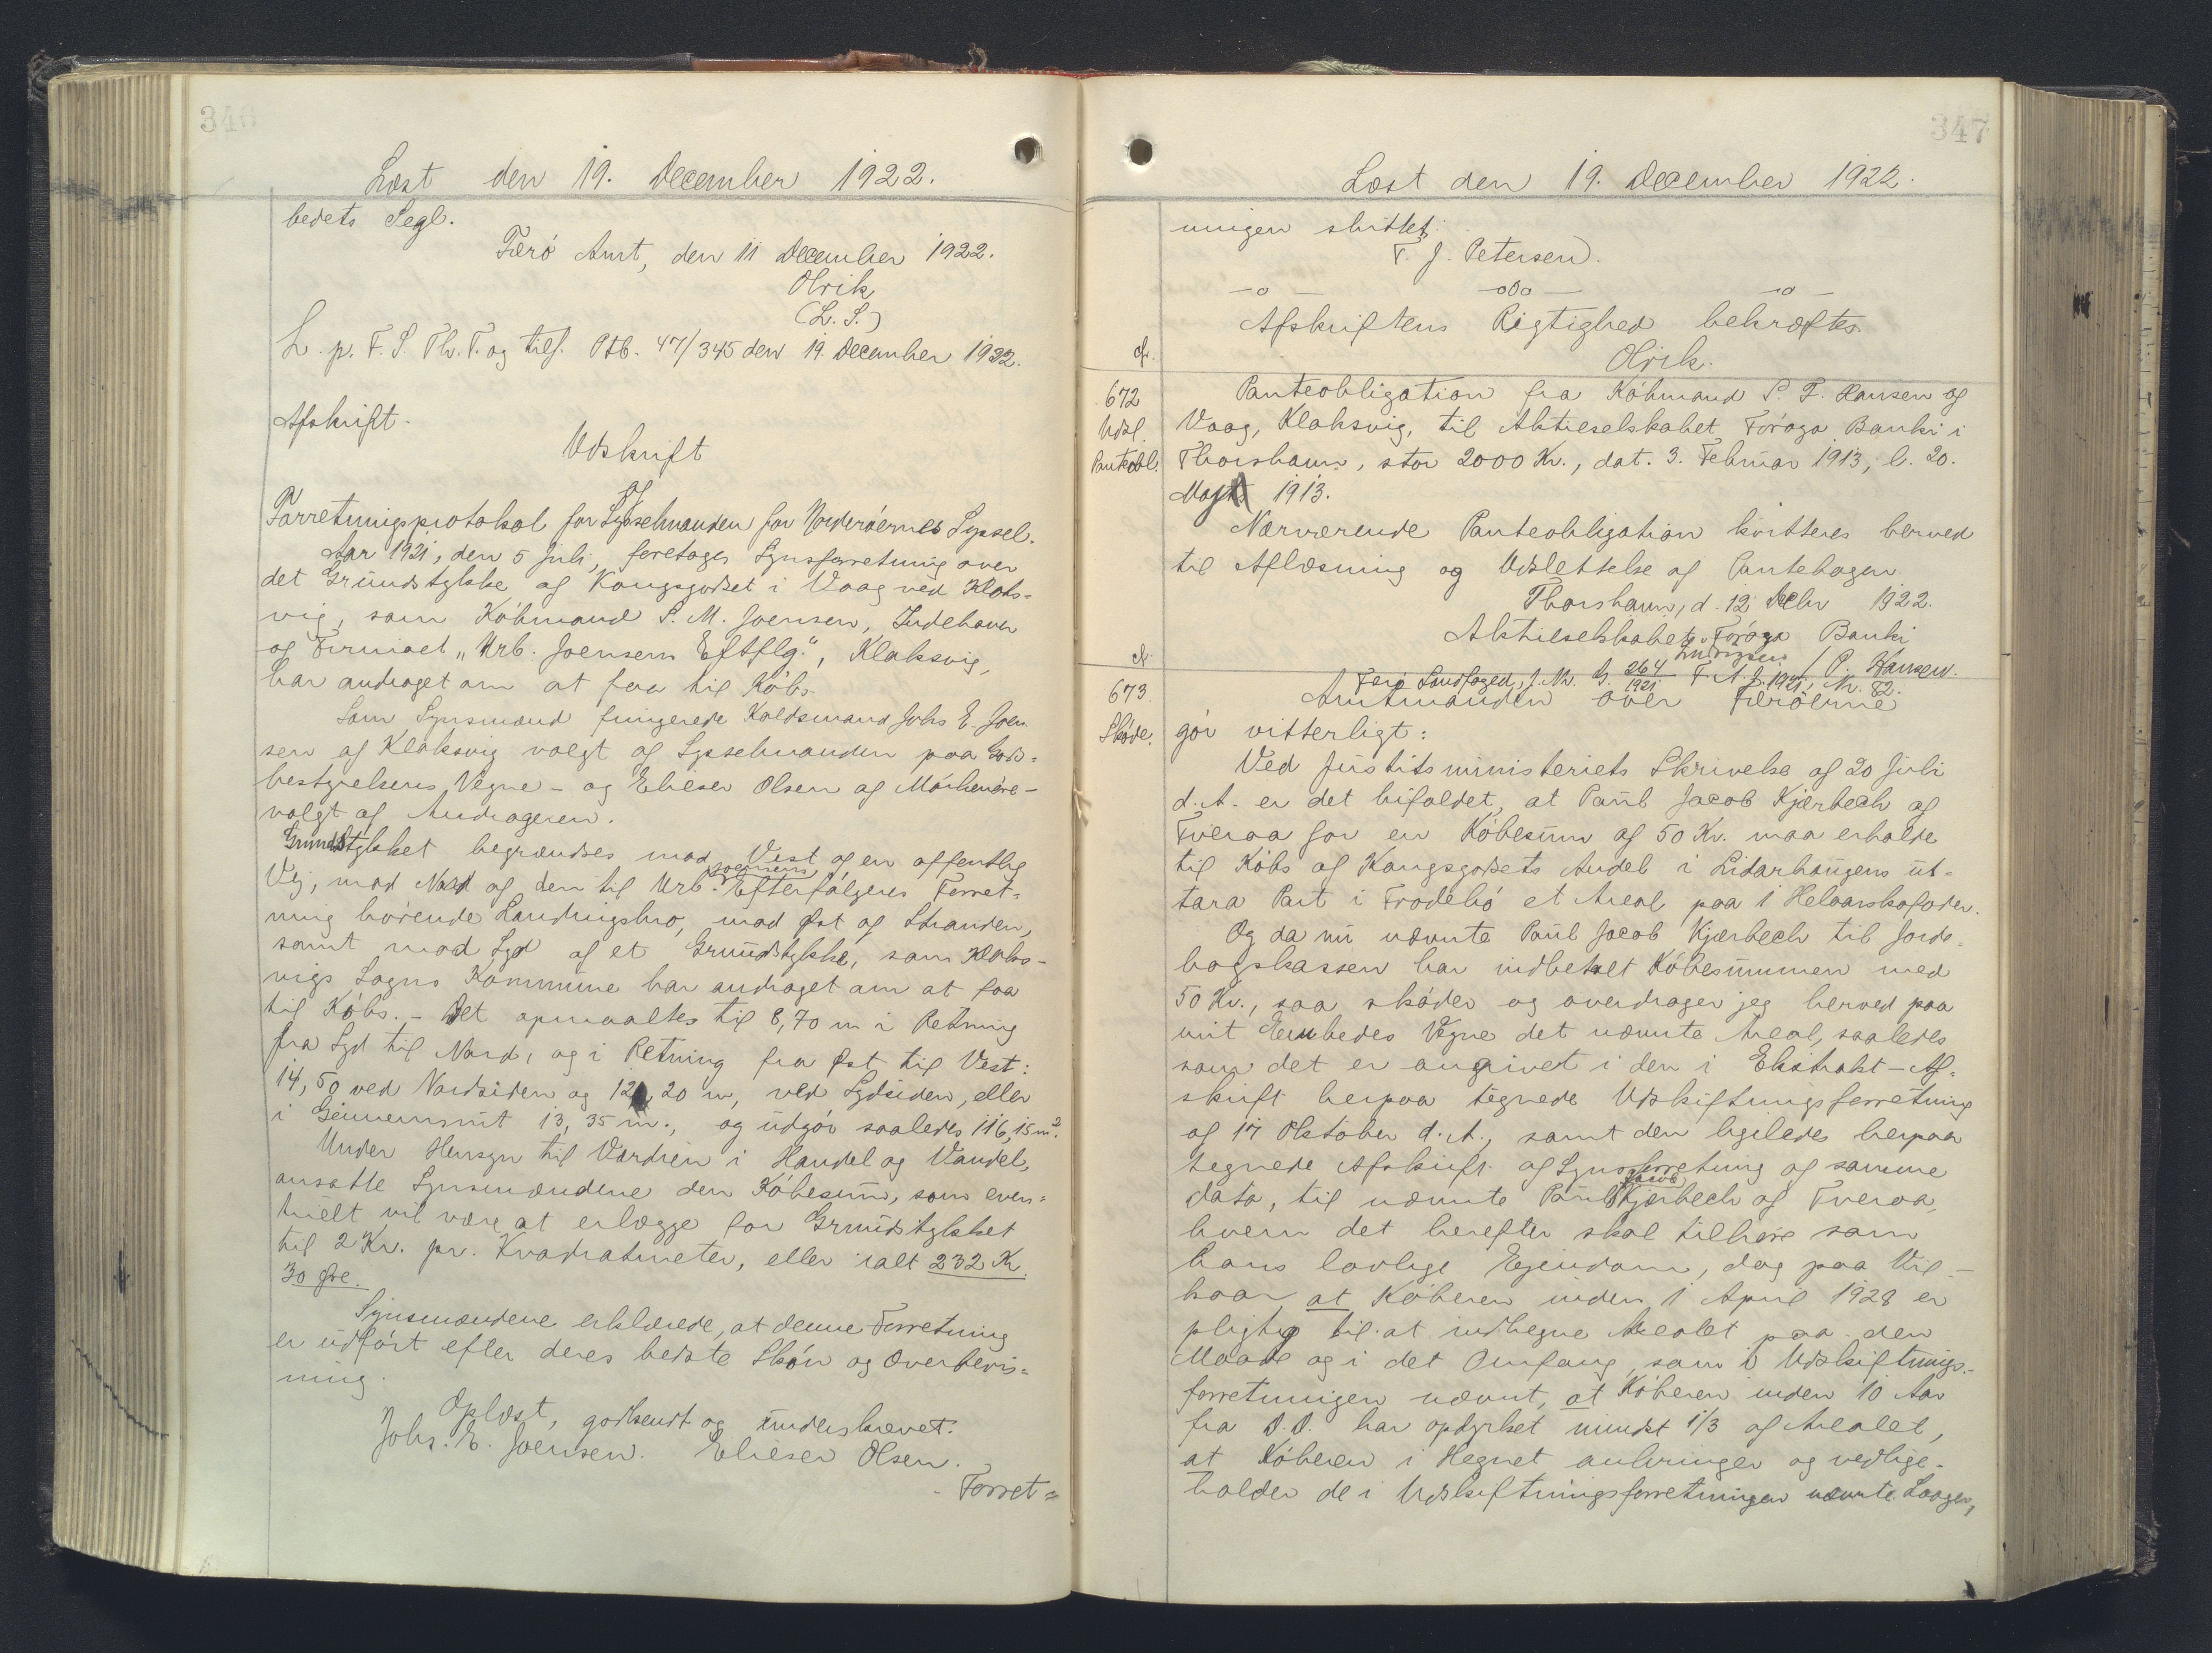 346
Læst den 19. December 1922.
bedets Segl.
Færø Amt, den 11 December 1922.
Olrik
(L. S.)
L. p. F. S. Th. T. og tilf. Ptb. 47/345 den 19. December 1922.
Afskrift.
Udskrift
af
Forretningsprotokol for Sysselmanden for Norderøernes Syssel.
Aar 1921, den 5 Juli, foretoges Synsforretning over
det Grundstykke af Kongsgodset i Vaag ved Klaks-
vig, som Købmand S. M. Joensen, Indehaver
af Firmaet „Urb. Joensens Eftflg.", Klaksvig,
har andraget om at faa til Købs.
Som Synsmænd fungerede Kaldsmand Johs E. Joen
sen af Klaksvig valgt af Sysselmanden paa Gods-
bestyrelsens Vegne - og Elieser Olsen af Mørkenøre -
valgt af Andrageren.
Grundstykket begrændses mod Vest af en offentlig
Vej, mod Nord af den til Urb. Joensens Efterfølgeres Forret-
ning hørende Landingsbro, mod Øst af Stranden,
samt mod Syd af et Grundstykke, som Klaks-
vigs Sogns Kommune har andraget om at faa
til Købs. - Det opmaaltes til 8,70 m i Retning
fra Syd til Nord, og i Retning fra Øst til Vest:
14,50 ved Nordsiden og 12,20 m, ved Sydsiden, eller
i Gennemsnit 13,35 m., og udgør saaledes 116,15 m².
Under Hensyn til Værdien i Handel og Vandel,
ansatte Synsmændene den Købesum, som even-
tuelt vil være at erlægge for Grundstykket
til 2 Kr. pr. Kvadratmeter, eller ialt 232 Kr.
30 Øre.
Synsmændene erklærede, at denne Forretning
er udført efter deres bedste Skøn og Overbevis-
ning.
Oplæst, godkendt og underskrevet.
Johs. E. Joensen. Elieser Olsen.
Forret-
347
Læst den 19. December 1922.
ningen sluttet.
F. J. Petersen.
—o— —oOo— —o—
Afskriftens Rigtighed bekræftes.
Olrik.
672
Udsl.
Panteobl.
Panteobligation fra Købmand S. F. Hansen af
Vaag, Klaksvig, til Aktieselskabet Føroya Banki i
Thorshavn, stor 2000 Kr., dat. 3. Februar 1913, l. 20.
Marts 1913.
Nærværende Panteobligation kvitteres herved
til Aflæsning og Udslettelse af Pantebogen.
Thorshavn, d. 12 Decbr 1922.
Aktieselskabet Føroya Banki
/ P. Hansen.
673.
Skøde.
Færø Landfoged, J. Nr. G. 264/1921 F. A. J. 1921, Nr. 82.
Amtmanden over Færøerne
gør vitterligt:
Ved Justitsministeriets Skrivelse af 20 Juli
d. A. er det bifaldet, at Paul Jacob Kjærbech af
Tveraa for en Købesum af 50 Kr. maa erholde
til Købs af Kongsgodsets Andel i Lidarhaugens út-
tara Part i Frodebø et Areal paa 1 Helaarskofoder.
Og da nu nævnte Paul Jacob Kjærbech til Jorde-
bogskassen har indbetalt Købesummen med
50 Kr., saa skøder og overdrager jeg herved paa
mit Embedes Vegne det nævnte Areal, saaledes
som det er angivet i den i Ekstrakt-Af-
skrift herpaa tegnede Udskiftningsforretning
af 17 Oktober d. A., samt den ligeledes herpaa
tegnede Afskrift af Synsforretning af samme
Dato, til nævnte Paul Jacob Kjærbech af Tveraa,
hvem det herefter skal tilhøre som
hans lovlige Ejendom, dog paa Vil-
kaar, at Køberen inden 1 April 1928 er
pligtig til at indhegne Arealet paa den
Maade og i det Omfang, som i Udskiftnings-
forretningen nævnt, at Køberen inden 10 Aar
fra D. D. har opdyrket mindst 1/3 af Arealet,
at Køberen i Hegnet anbringer og vedlige-
holder de i Udskiftningsforretningen nævnte Laager,